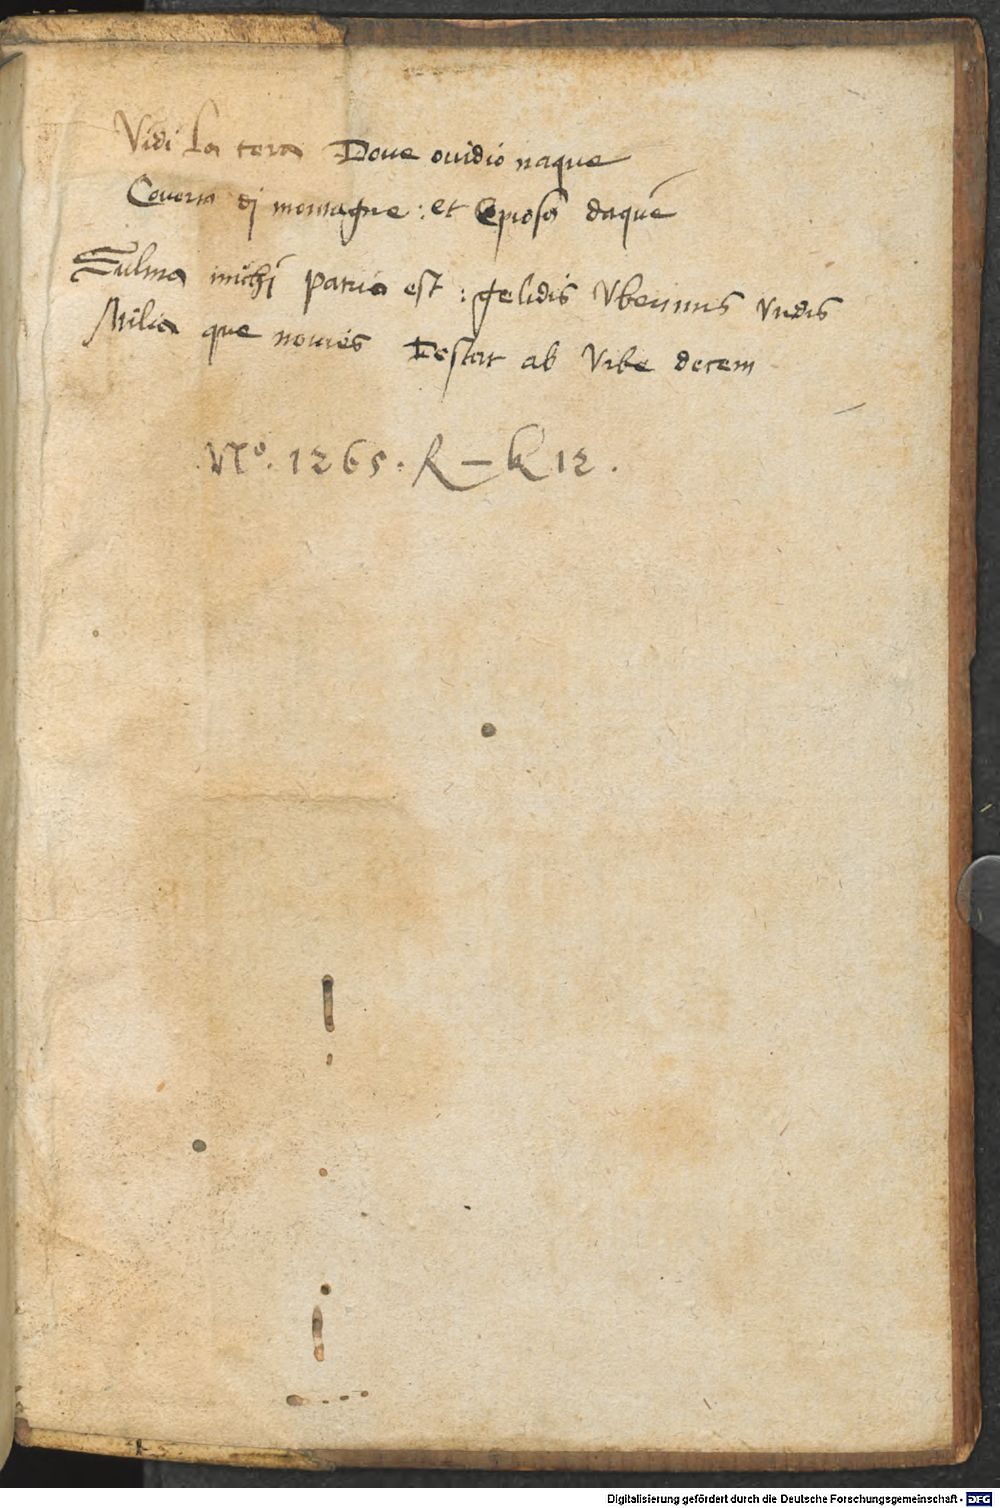 Vidi la tera Doue ouidio naque
Coverta di montagne : et Copiosa daque
Sulmo michi patria est : gelidis Vberrimus Vndis
Milia que nouies Destat ab Vrbe decem
Nº. 1265. R – k 12.
Digitalisierung gefördert durch die Deutsche Forschungsgemeinschaft - DFG